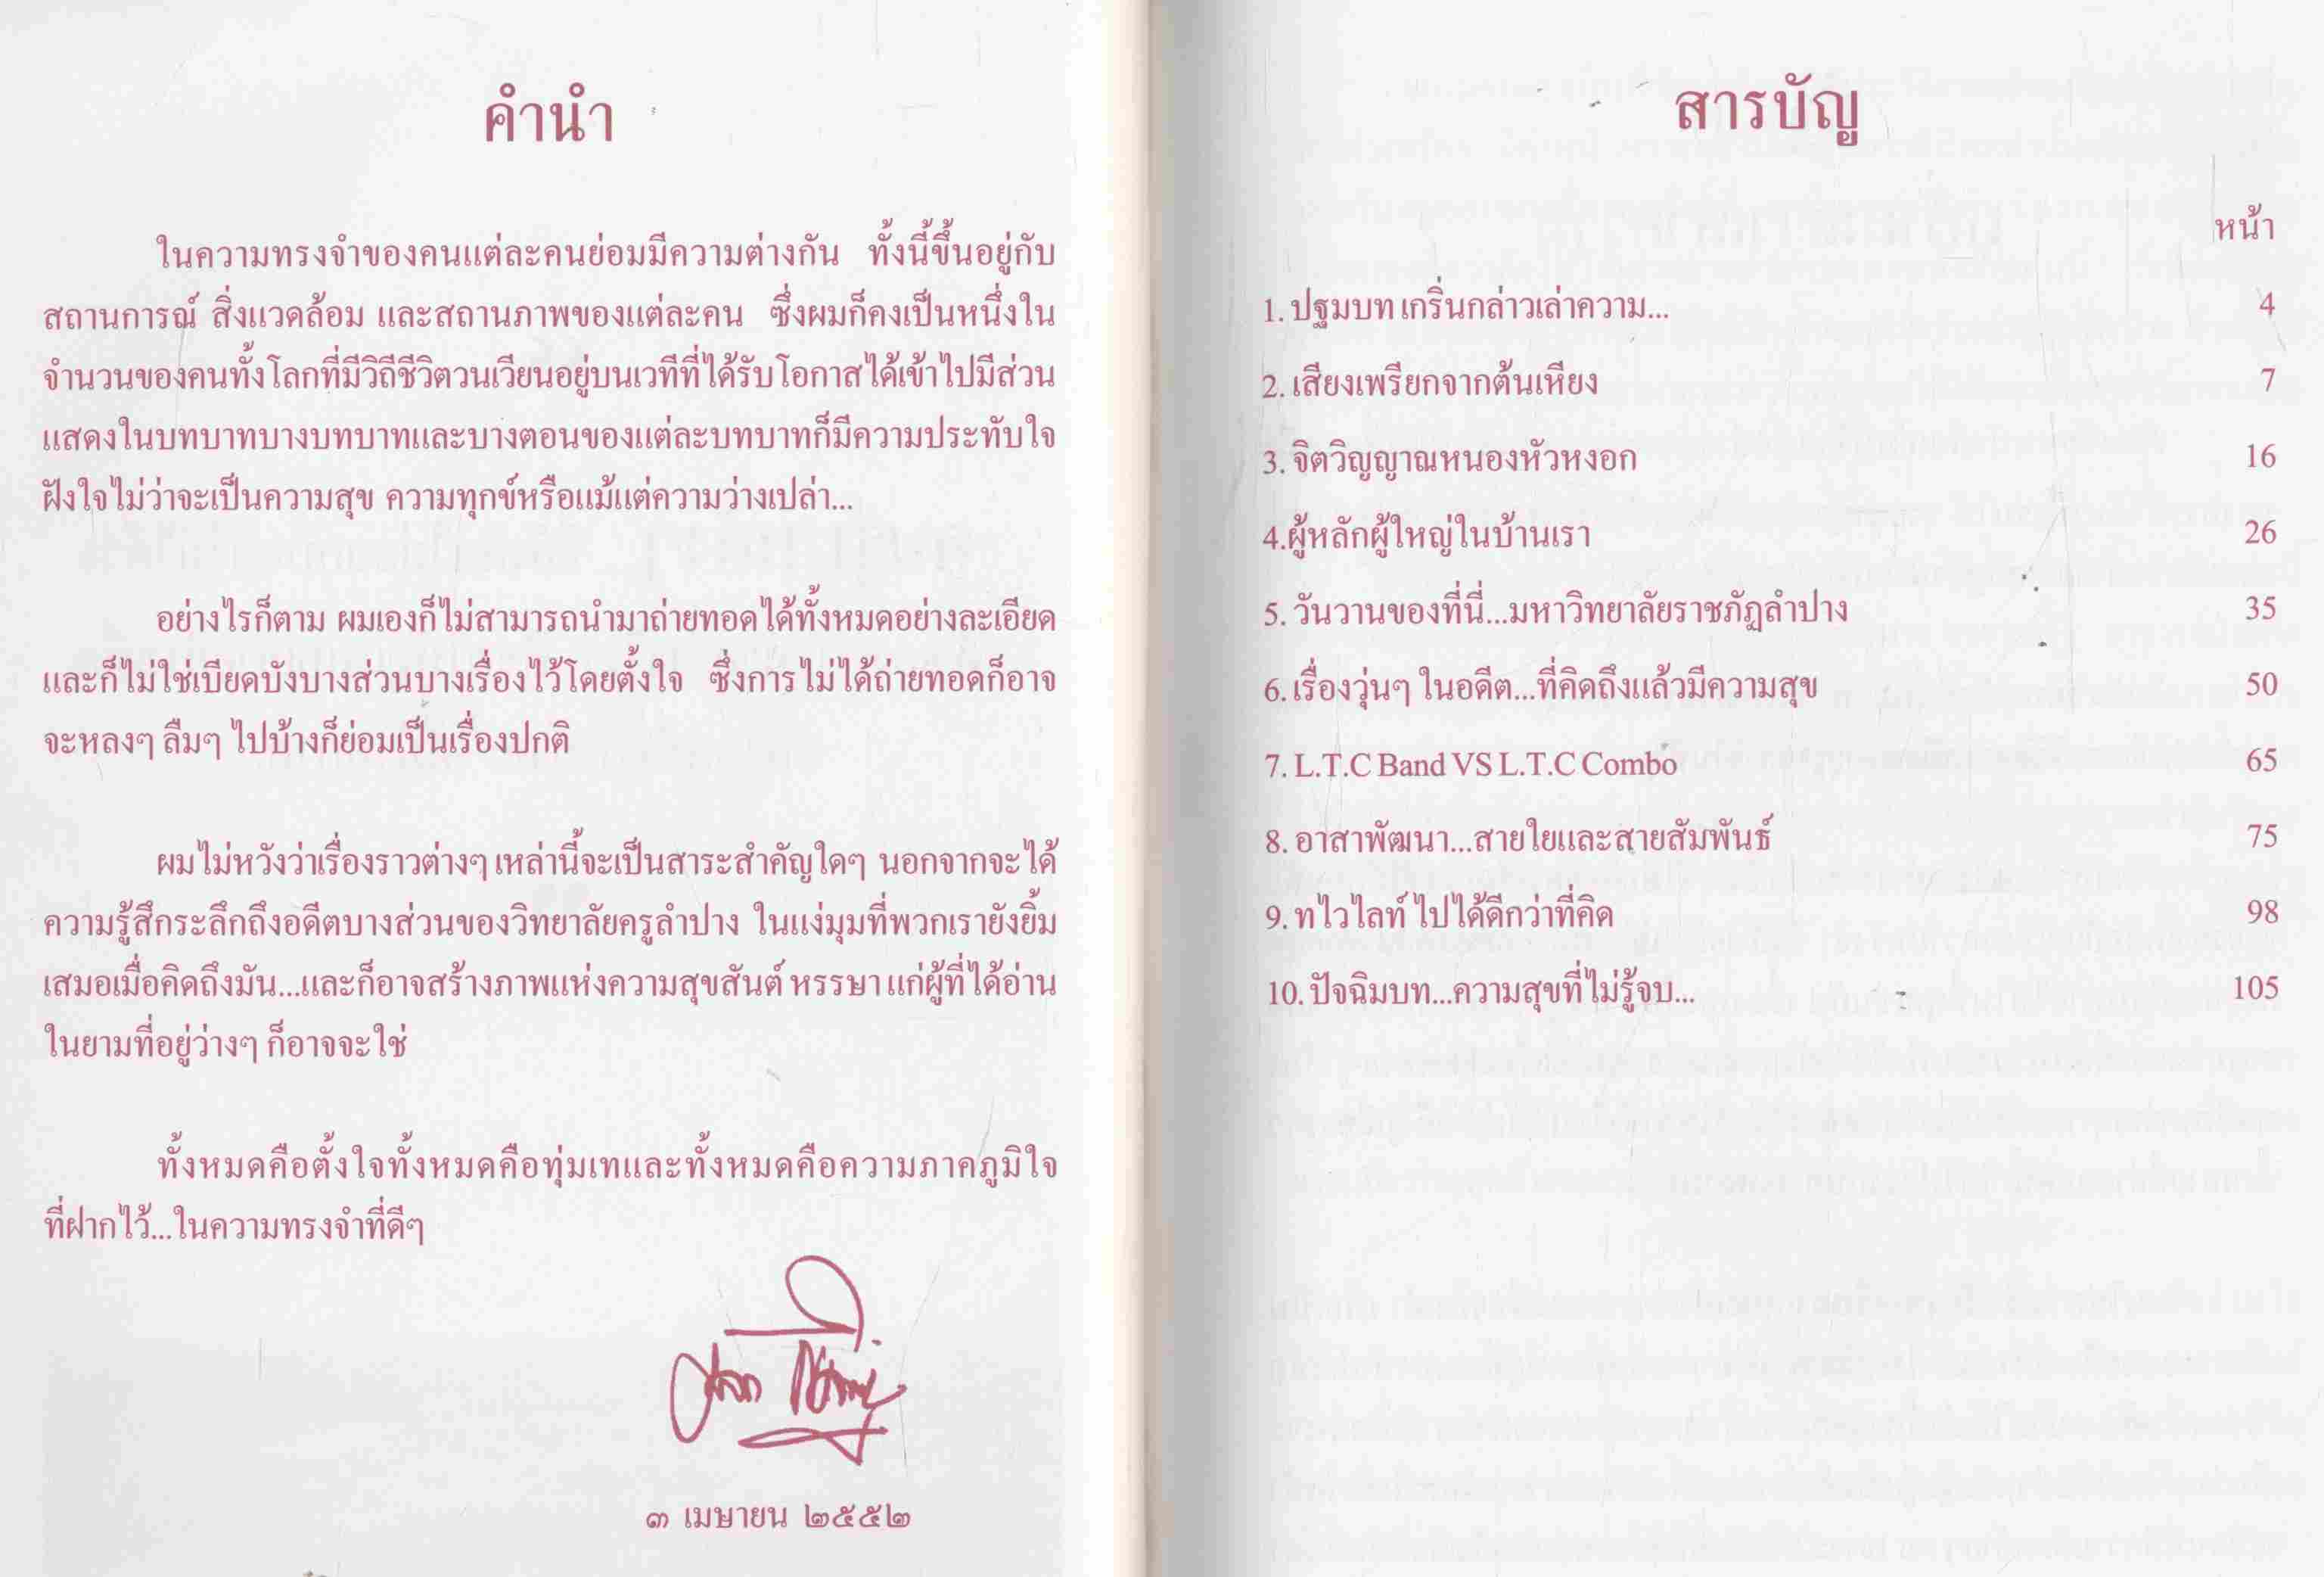 คำนำ
ในความทรงจำของคนแต่ละคนย่อมมีความต่างกัน ทั้งนี้ขึ้นอยู่กับ
สถานการณ์ สิ่งแวดล้อม และสถานภาพของแต่ละคน ซึ่งผมก็คงเป็นหนึ่งใน
จำนวนของคนทั้งโลกที่มีวิถีชีวิตวนเวียนอยู่บนเวทีที่ได้รับโอกาสได้เข้าไปมีส่วน
แสดงในบทบาทบางบทบาทและบางตอนของแต่ละบทบาทก็มีความประทับใจ
ฝังใจไม่ว่าจะเป็นความสุข ความทุกข์หรือแม้แต่ความว่างเปล่า...
อย่างไรก็ตาม ผมเองก็ไม่สามารถนำมาถ่ายทอดได้ทั้งหมดอย่างละเอียด
และก็ไม่ใช่เบียดบังบางส่วนบางเรื่องไว้โดยตั้งใจ ซึ่งการไม่ได้ถ่ายทอดก็อาจ
จะหลงๆ ลืมๆ ไปบ้างก็ย่อมเป็นเรื่องปกติ
ผมไม่หวังว่าเรื่องราวต่างๆ เหล่านี้จะเป็นสาระสำคัญใดๆ นอกจากจะได้
ความรู้สึกระลึกถึงอดีตบางส่วนของวิทยาลัยครูลำปาง ในแง่มุมที่พวกเรายังยิ้ม
เสมอเมื่อคิดถึงมัน...และก็อาจสร้างภาพแห่งความสุขสันต์ หรรษา แก่ผู้ที่ได้อ่าน
ในยามที่อยู่ว่างๆ ก็อาจจะใช่
ทั้งหมดคือตั้งใจทั้งหมดคือทุ่มเทและทั้งหมดคือความภาคภูมิใจ
ที่ฝากไว้...ในความทรงจำที่ดีๆ
๓ เมษายน ๒๕๕๒
สารบัญ
หน้า
1. ปฐมบท เกริ่นกล่าวเล่าความ... 4
2. เสียงเพรียกจากต้นเหียง 7
3. จิตวิญญาณหนองหัวหงอก 16
4.ผู้หลักผู้ใหญ่ในบ้านเรา 26
5. วันวานของที่นี่...มหาวิทยาลัยราชภัฏลำปาง 35
6. เรื่องวุ่นๆ ในอดีต...ที่คิดถึงแล้วมีความสุข 50
7. L.T.C Band VS L.T.C Combo 65
8. อาสาพัฒนา...สายใยและสายสัมพันธ์ 75
9. ทไวไลท์ ไปได้ดีกว่าที่คิด 98
10. ปัจฉิมบท...ความสุขที่ไม่รู้จบ... 105